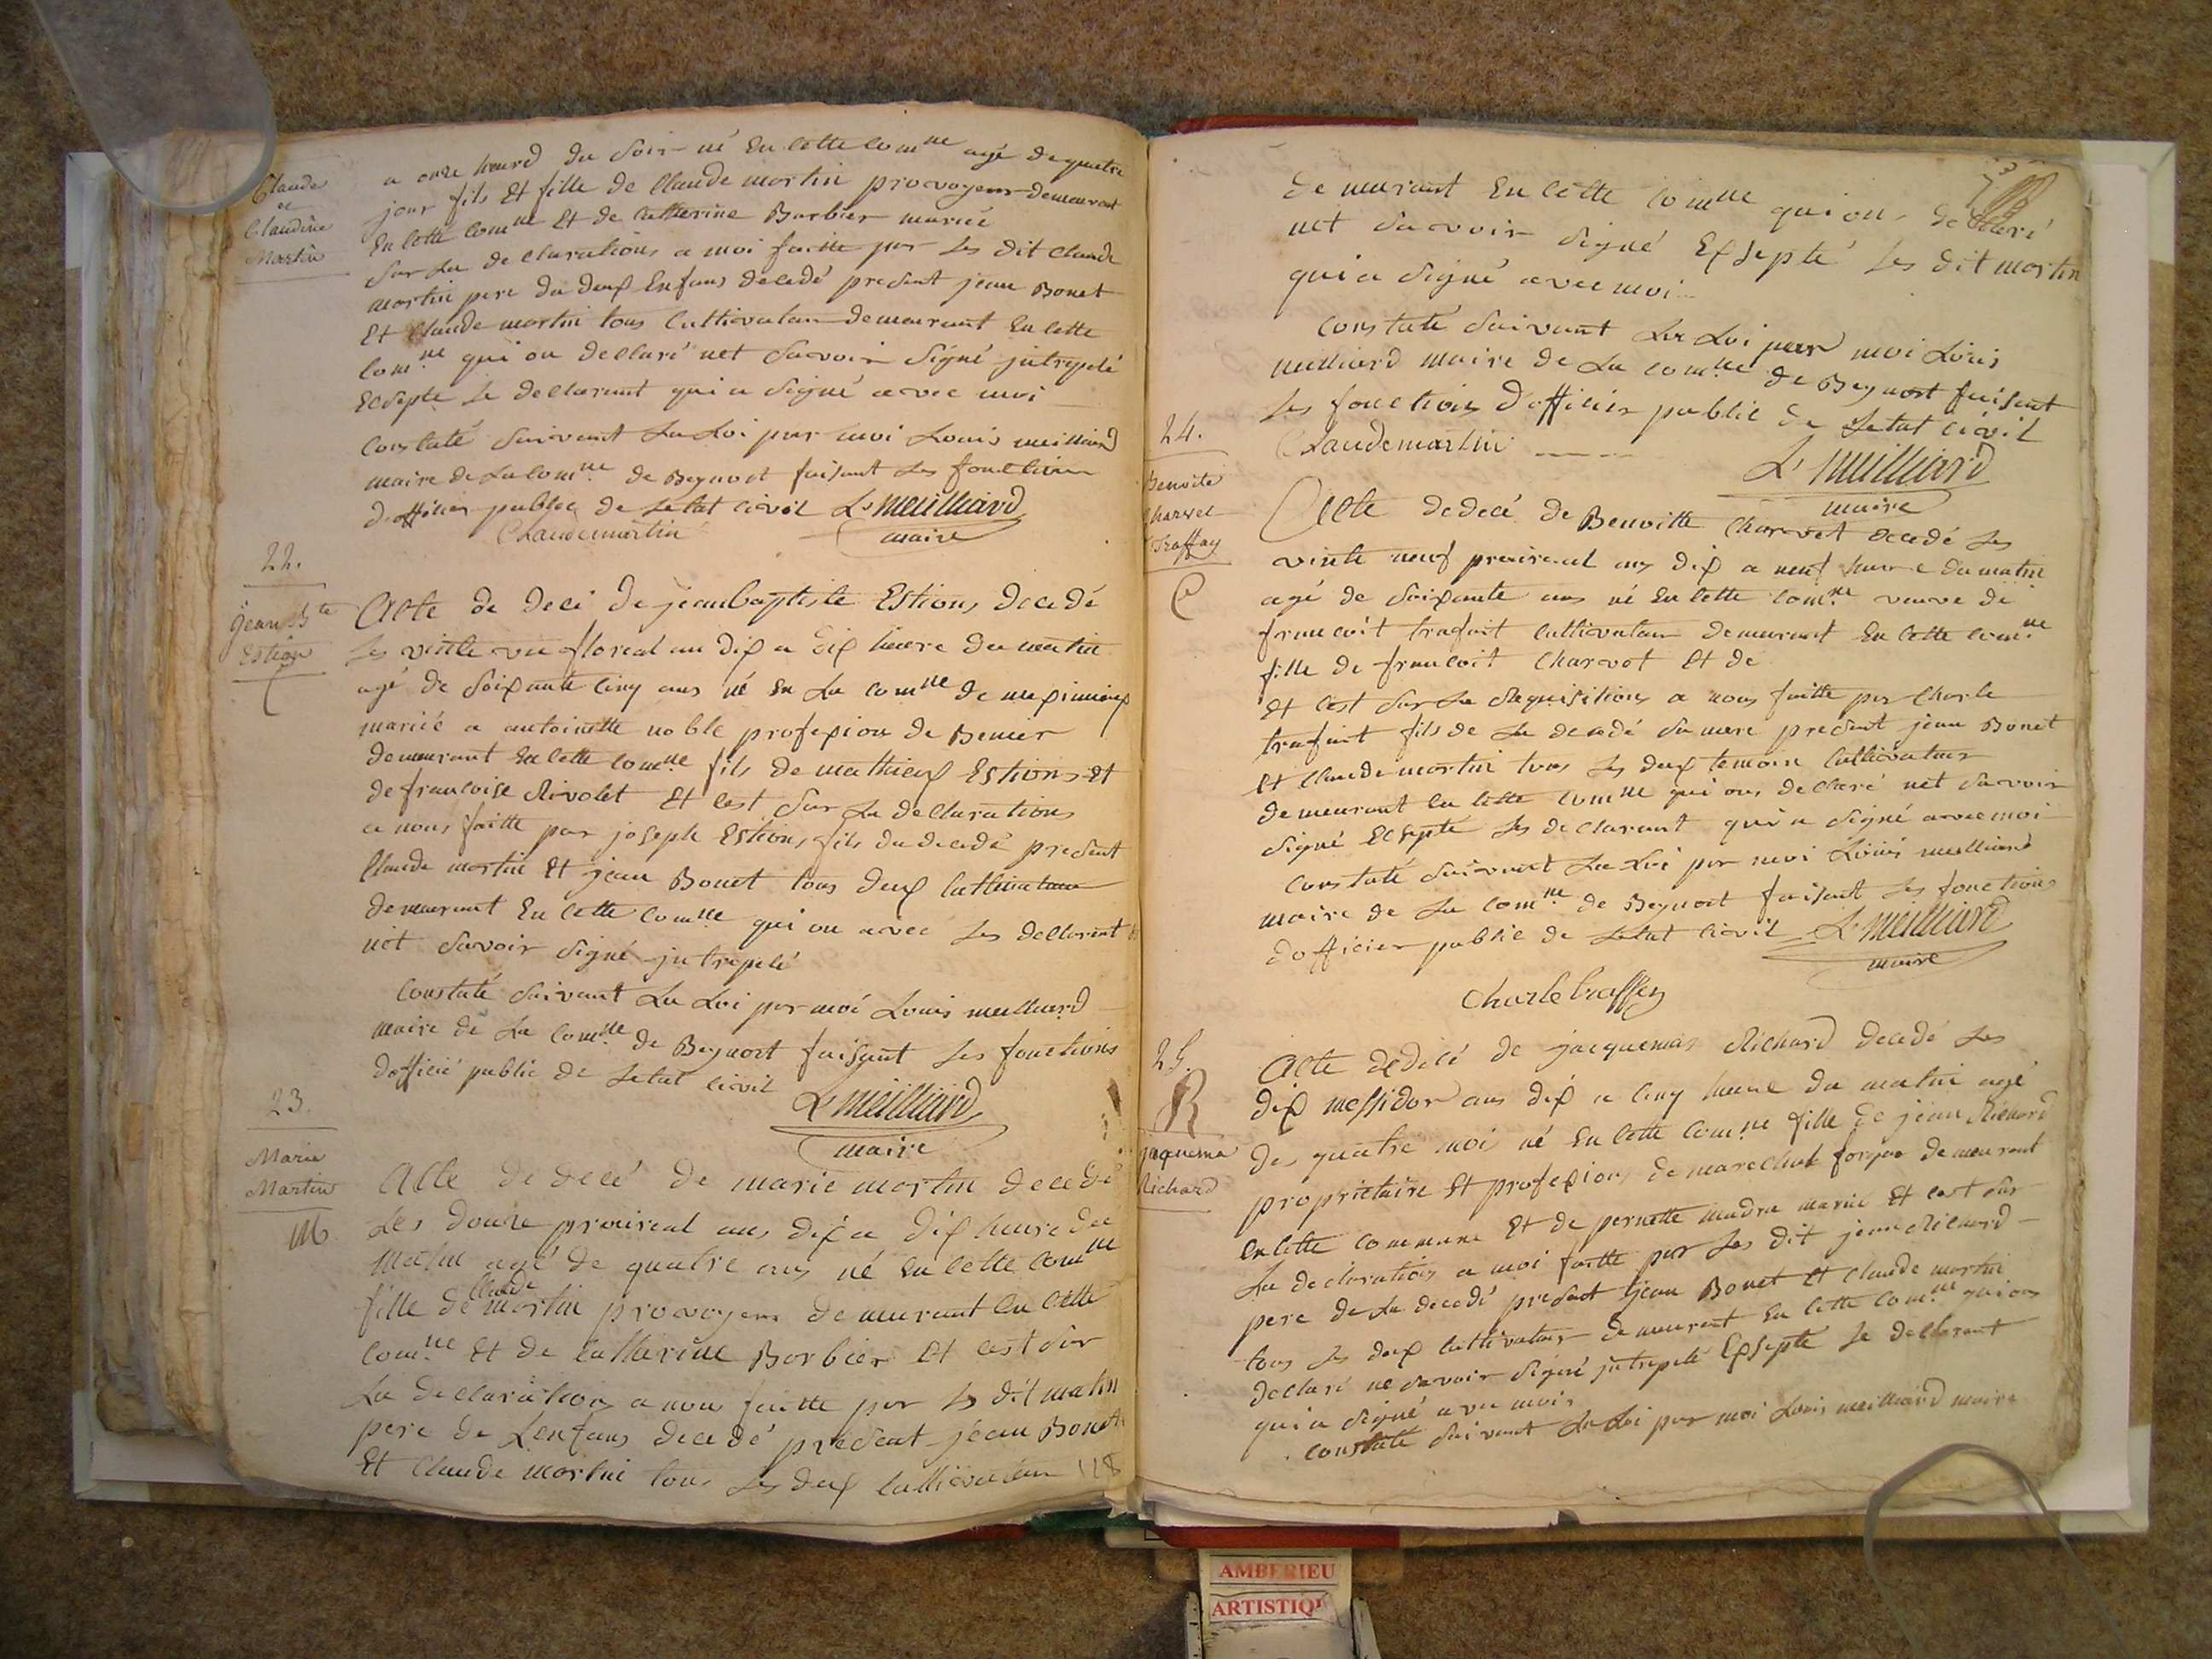 Claude
et
Claudine
Martin
a onze heurd du soir né en cette com.ne agé de quatre
jour fils et fille de Claude martin provoyeur demeurant
en cette com.ne et de Catherine Barbier mariée
sur la declarations a moi faitte par les dit Claude
martin pere du deux enfans decedé present jean Bonet
et Claude martin tous cultivatur demeurant en cette
com.ne qui on declaré net savoir signé jntrepelé
ecsepte le declarant qui a signé avec moi
constaté suivant la Loi par moi Louis meilliard
maire de la com.ne de Beynost faisant les fonctions
dofficier public de letat civil L. meilliard
Claudemartin maire
22.
jean Bte
Estion
Acte de deci de jeanbaptiste Estions decedé
les vintte un floreal an dix a dix heure du matin
agé de soixante cinq ans né en la com.ne de meximieux
mariée a antoinette noble profexion de
demeurant en cette com.ne fils de mathieux Estions et
de francoise Rivolet et cest sur la declarations
a nous faitte par joseph Estions, fils du decedé present
Claude martin et jean Bonet tous deux cultivateur
demeurant en cette com.ne qui on avec les declarent
nêt savoir signé jntrepelé
constaté suivant la Loi par moi Louis meilliard
maire de la com.ne de Beynost faisant les fonctions
dofficié public de letat civil
L. meilliard
maire
23.
Marie
Martin
M
Acte de decé de marie martin decedé
les douze praireal ans dix a dix heure du
matin agé de quatre ans né en cette com.ne
Claude
fille de martin provoyeur demeurant en cette
com.ne et de Catherine Barbier et cest sur
La declaration a nous faitte par les dit matin
pere de Lenfans decedé present jean Bonet
et Claude martin tous les deux cultivateur 128
demeurant en cette com.ne qui ons declaré
net savoir signé exsepté les dit martin
qui a signé avec moi
constaté suivant la Loi par moi Louis
meilliard maire de la com.ne de Beynost faisant
les fonctions dofficier public de letat civil
Claudemartin
L. meilliard
maire
24.
Benoite
Charvet
Traffay
C
Acte dedecé de Benoitte Charvet decedé les
vinte neuf praireal ans dix a neuf heure du matin
agé de soixante ans né en cette com.ne veuve de
francoit trafait cultivateur demeurant en cette com.ne
fille de francoit Charvot et de
et cest sur la Requisitions a nous faitte par Charle
trafait fils de la decedé sa mere present jean Bonet
et Claude martin tous les deux temoin cultivateur
demeurant en cette com.ne qui ons declaré net savoir
signé ecsepté les declarant qui a signé avec moi
constaté suivant la Loi par moi Louis meilliard
maire de la com.ne de Beynost faisant les fonctions
dofficier public de letat civil L. meilliard
maire
Charle traffey
25.
R
jaquema
Richard
Acte dedecé de jacquemas Richard decedé les
dix messidor ans dix a cinq heure du matin agé
des quatre moi né en cette com.ne fille de jean Richard
proprietaire et profexions de marechal forgeo demeurant
en cette commune et de pernette madra marié et cest sur
La declarations a moi faitte par les dit jean Richard
pere de la decedé present jean Bonet et Claude martin
tous les deux cultivateur demeurant en cette com.ne qui ons
declaré ne savoir signé jntrepelé exsepte le declarant
qui a signé avec moi
constaté suivant la Loi par moi Louis meilliard maire
AMBERIEU
ARTISTIQU